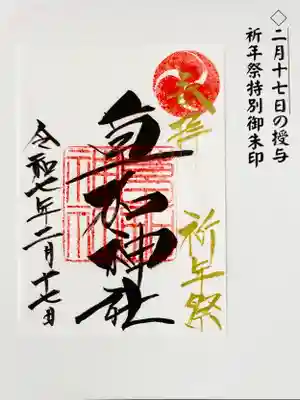 ◇二月十七日の授与
祈年祭特別御朱印
奉拝
祈年祭
草加神社
令和七年二月十七日